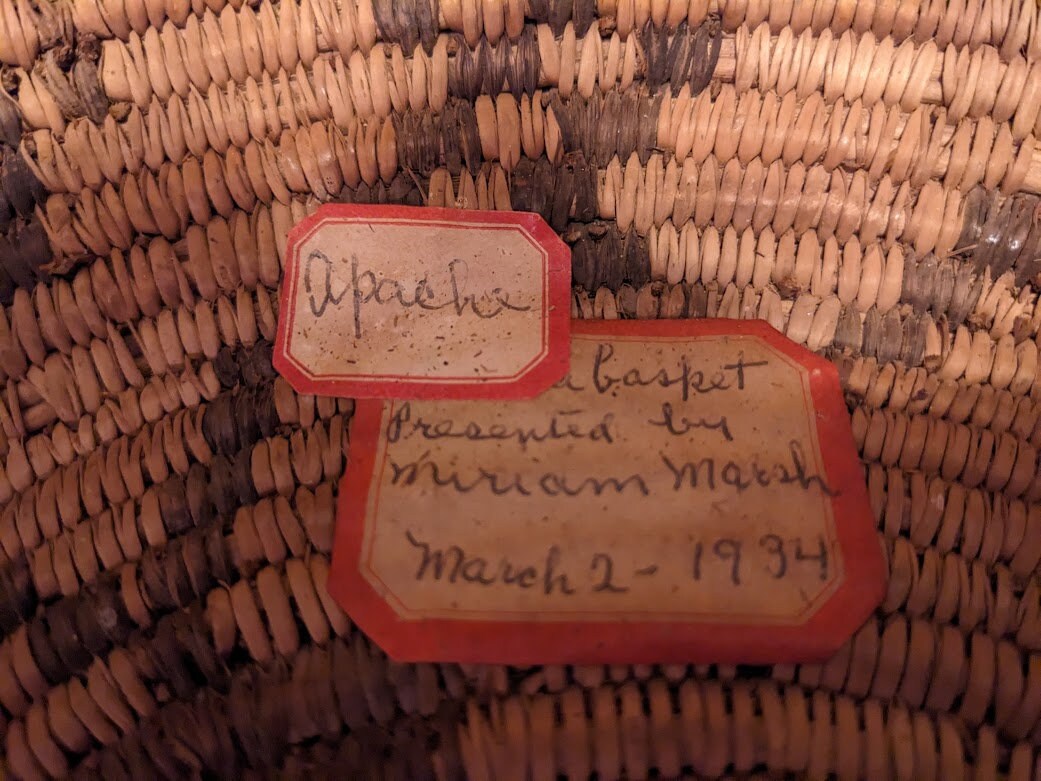 Apache
a basket
Presented by
Miriam Marsh
March 2 - 1934